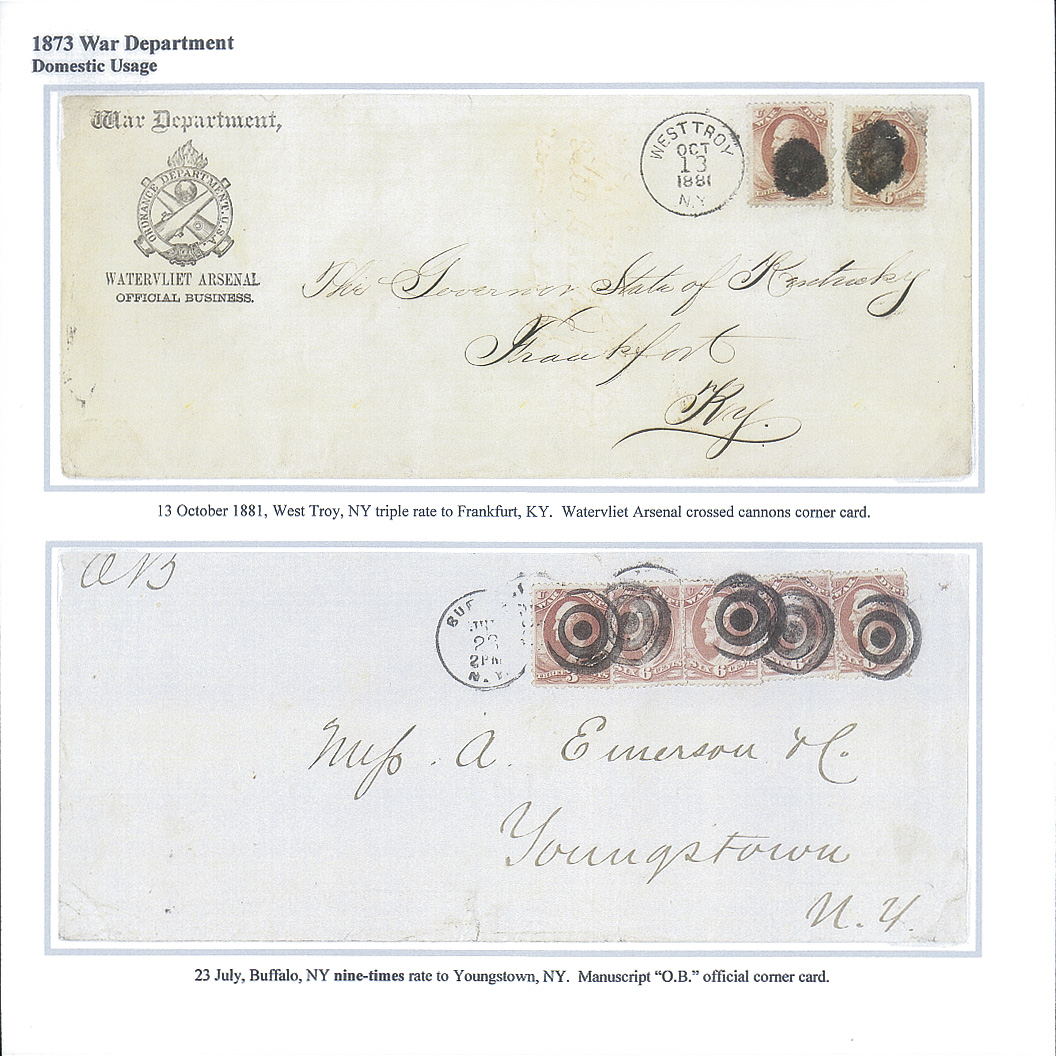 1873 War Department
Domestic Usage
War Department,
ORDNANCE DEPARTMENT. U.S.A.
WATERVLIET ARSENAL
OFFICIAL BUSINESS.
WEST TROY
OCT
13
1881
N.Y.
6 CENTS
The Governor State of Kentucky
Frankfort
Ky.
13 October 1881, West Troy, NY triple rate to Frankfurt, KY. Watervliet Arsenal crossed cannons corner card.
OB
BUF
23
2PM
N.Y.
3
SIX 6 CENTS
SIX 6 CENTS
SIX 6
SIX 6
Mess. A. Emerson & Co.
Youngstown
N.Y.
23 July, Buffalo, NY nine-times rate to Youngstown, NY. Manuscript “O.B.” official corner card.